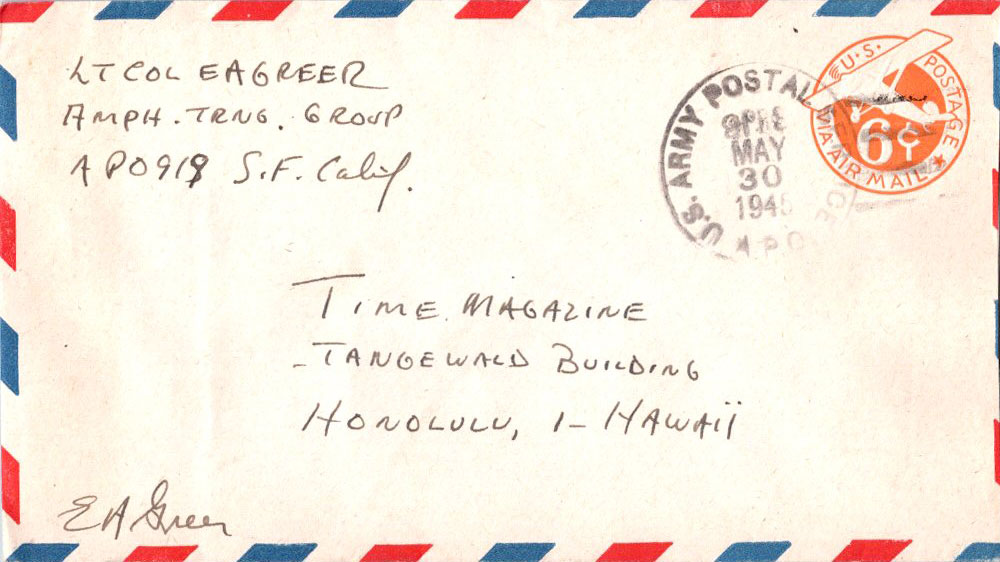 LT COL E A GREER
AMPH. TRNG. GROUP
APO 919 S.F. Calif.
U.S. ARMY POSTAL
MAY
30
1945
A.P.O.
U.S. POSTAGE
6¢
VIA AIR MAIL
TIME MAGAZINE
TANGEWALD BUILDING
HONOLULU, 1- HAWAII
E A Greer